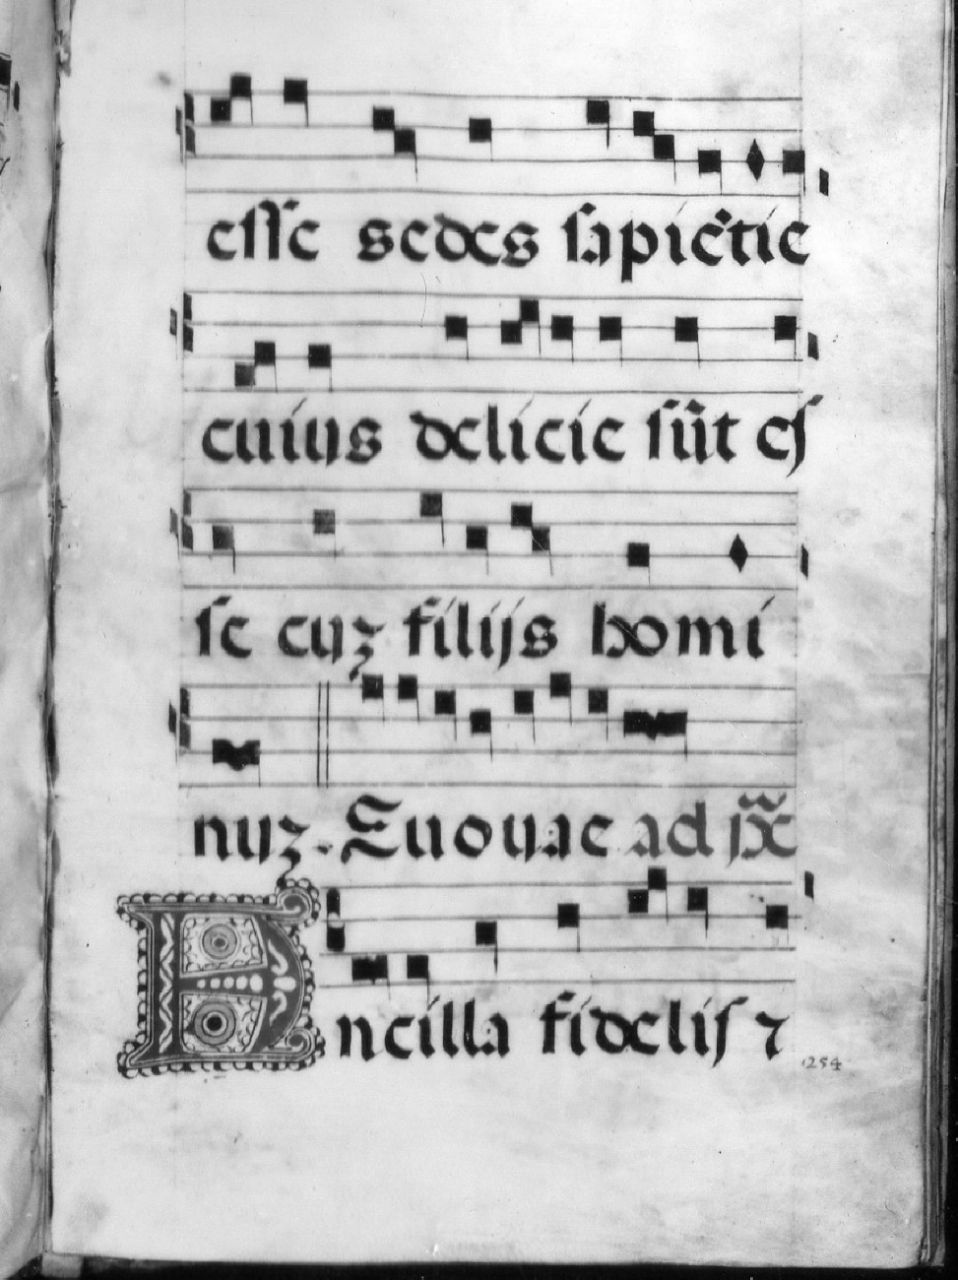 esse sedes sapiẽtie
cuius delicie sũt eſ
se cuʒ filijs homi
nuʒ. Euouae ad p̃x̃
Ancilla fidelis ⁊
254